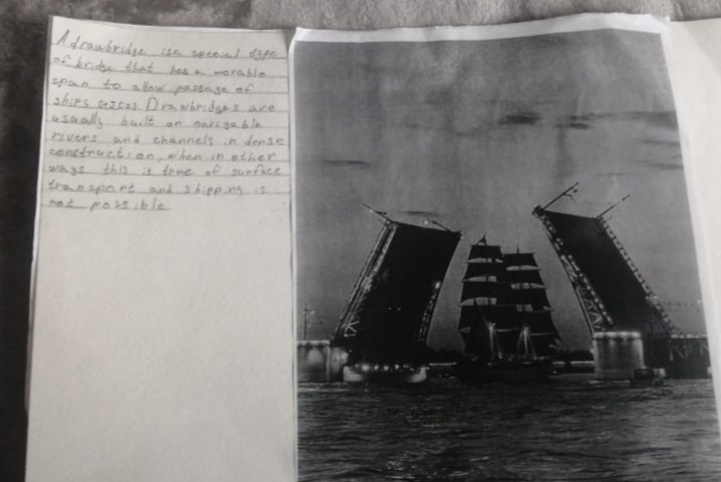 A drawbridge is a special type
of bridge that has a movable
span to allow passage of
ships Drawbridges are
usually built on navigable
rivers and channels in dense
construction, when in other
ways this is true of surface
transport and shipping is
not possible